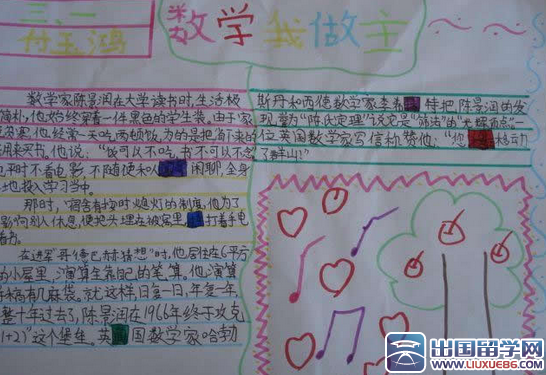 三、一
付玉鸿
数学我做主
数学家陈景润在大学读书时,生活极
简朴,他始终穿着一件黑色的学生装。由于家
他经常一天吃两顿饭,为的是把省下来的
用来买书。他说:“饭可以不吃,书不可以不念
平时不看电影,不随便和人闲聊,全身
地投入学习当中。
那时,宿舍有按时熄灯的制度,他为了
影响别人休息,便把头埋在被窝里打着手电
看书。
在进军“哥德巴赫猜想”时,他居住在6平方
的小屋里,演算全靠自己的笔算。他演算
稿有几麻袋。就这样,日复一日,年复一年,
整十年过去了,陈景润在1966年终于攻克
1+2)”这个堡垒。英国数学家哈勃
斯丹和西德数学家李希特把陈景润的发
现誉为“陈氏定理”
位英国数学家写信称赞他:“您移动
了群山!”
出国留学网
www.liuxue86.com